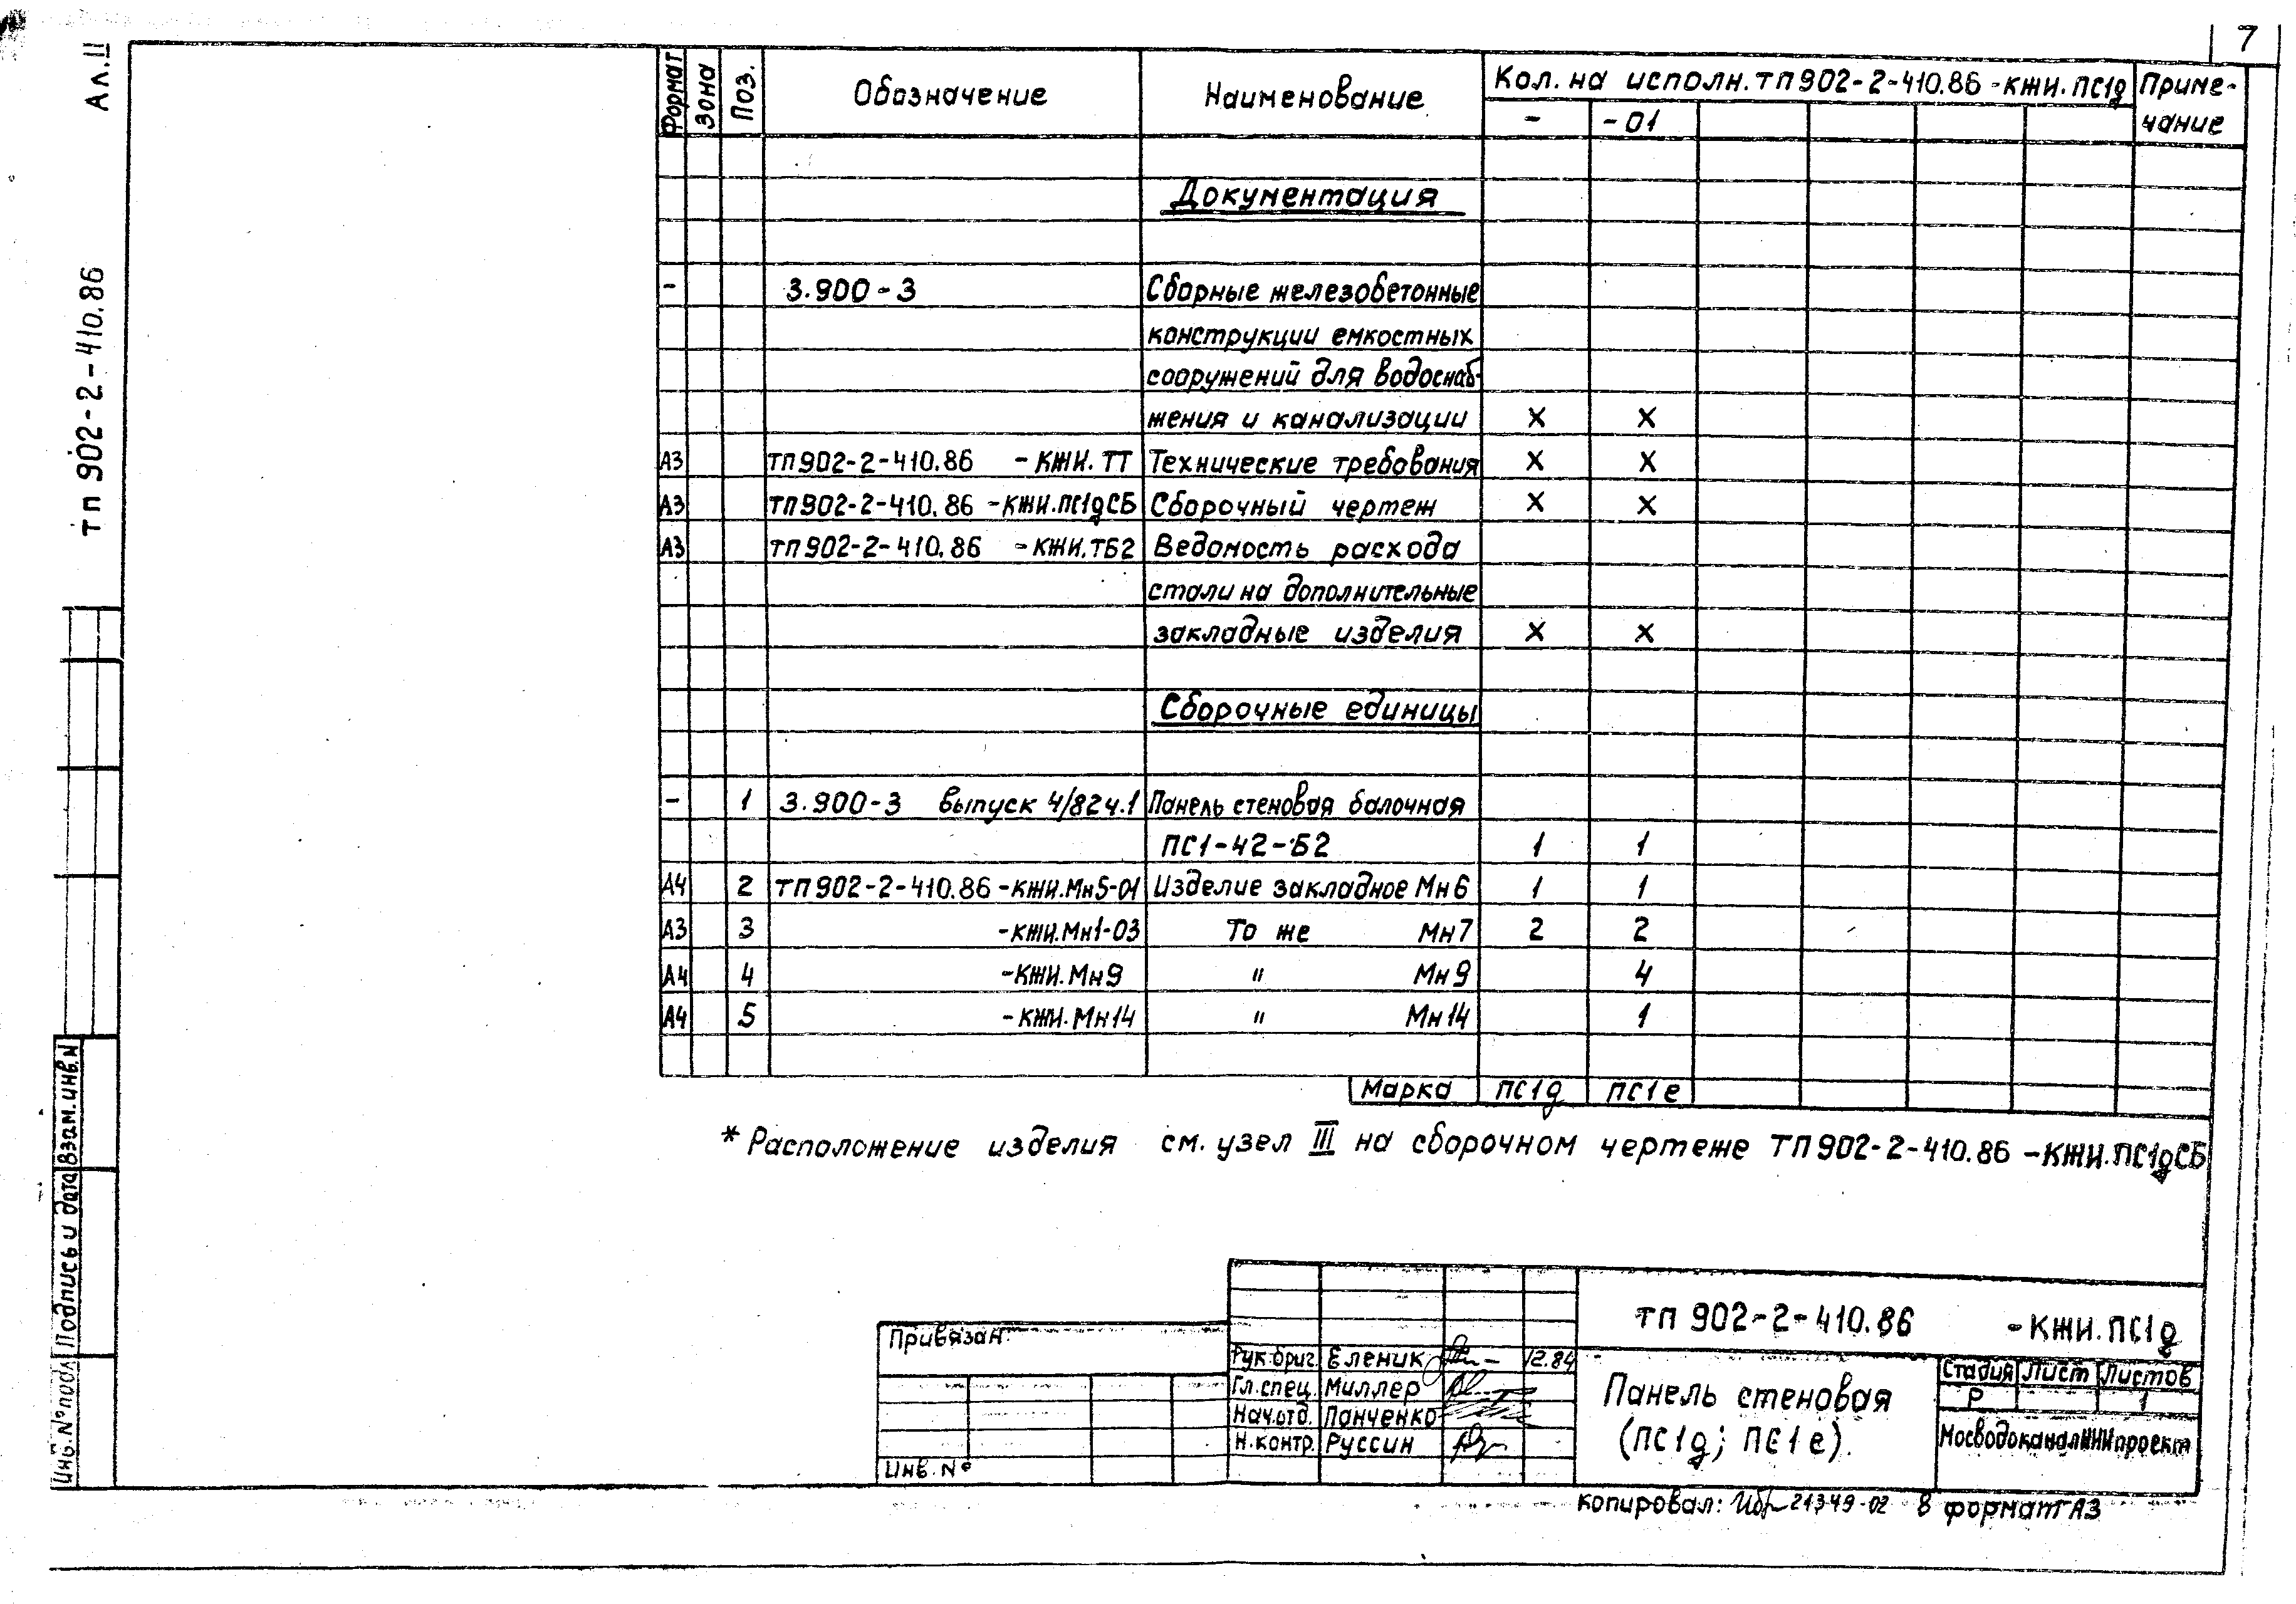 7
Ал. II
тп 902-2-410.86
Формат Зона Поз. Обозначение Наименование Кол. на исполн. тп 902-2-410.86 -КЖИ.ПС1д Приме-
- -01 чание
Документация
- 3.900-3 Сборные железобетонные
конструкции емкостных
сооружений для водоснаб-
жения и канализации х х
А3 тп 902-2-410.86 -КЖИ.ТТ Технические требования х х
А3 тп 902-2-410.86 -КЖИ.ПС1дСБ Сборочный чертеж х х
А3 тп 902-2-410.86 -КЖИ.ТБ2 Ведомость расхода
стали на дополнительные
закладные изделия х х
Сборочные единицы
- 1 3.900-3 выпуск 4/82ч.1 Панель стеновая балочная
ПС1-42-Б2 1 1
А4 2 тп 902-2-410.86 -КЖИ.Мн5-01 Изделие закладное Мн6 1 1
А3 3 -КЖИ.Мн1-03 То же Мн7 2 2
А4 4 -КЖИ.Мн9 " Мн9 4
А4 5 -КЖИ.Мн14 " Мн14 1
Марка ПС1д ПС1е
* Расположение изделия см. узел III на сборочном чертеже тп 902-2-410.86 -КЖИ.ПС1дСБ
Взам.инв.N
Подпись и дата
Инв.N°подл
Привязан:
Инв. N°
тп 902-2-410.86 -КЖИ.ПС1д
Рук.бриг. Еленик 12.84
Гл.спец. Миллер
Нач.отд. Панченко
Н.контр. Руссин
Панель стеновая
(ПС1д; ПС1е).
Стадия Лист Листов
Р 1
МосводоканалНИИпроект
копировал: 21349-02 8 формат А3